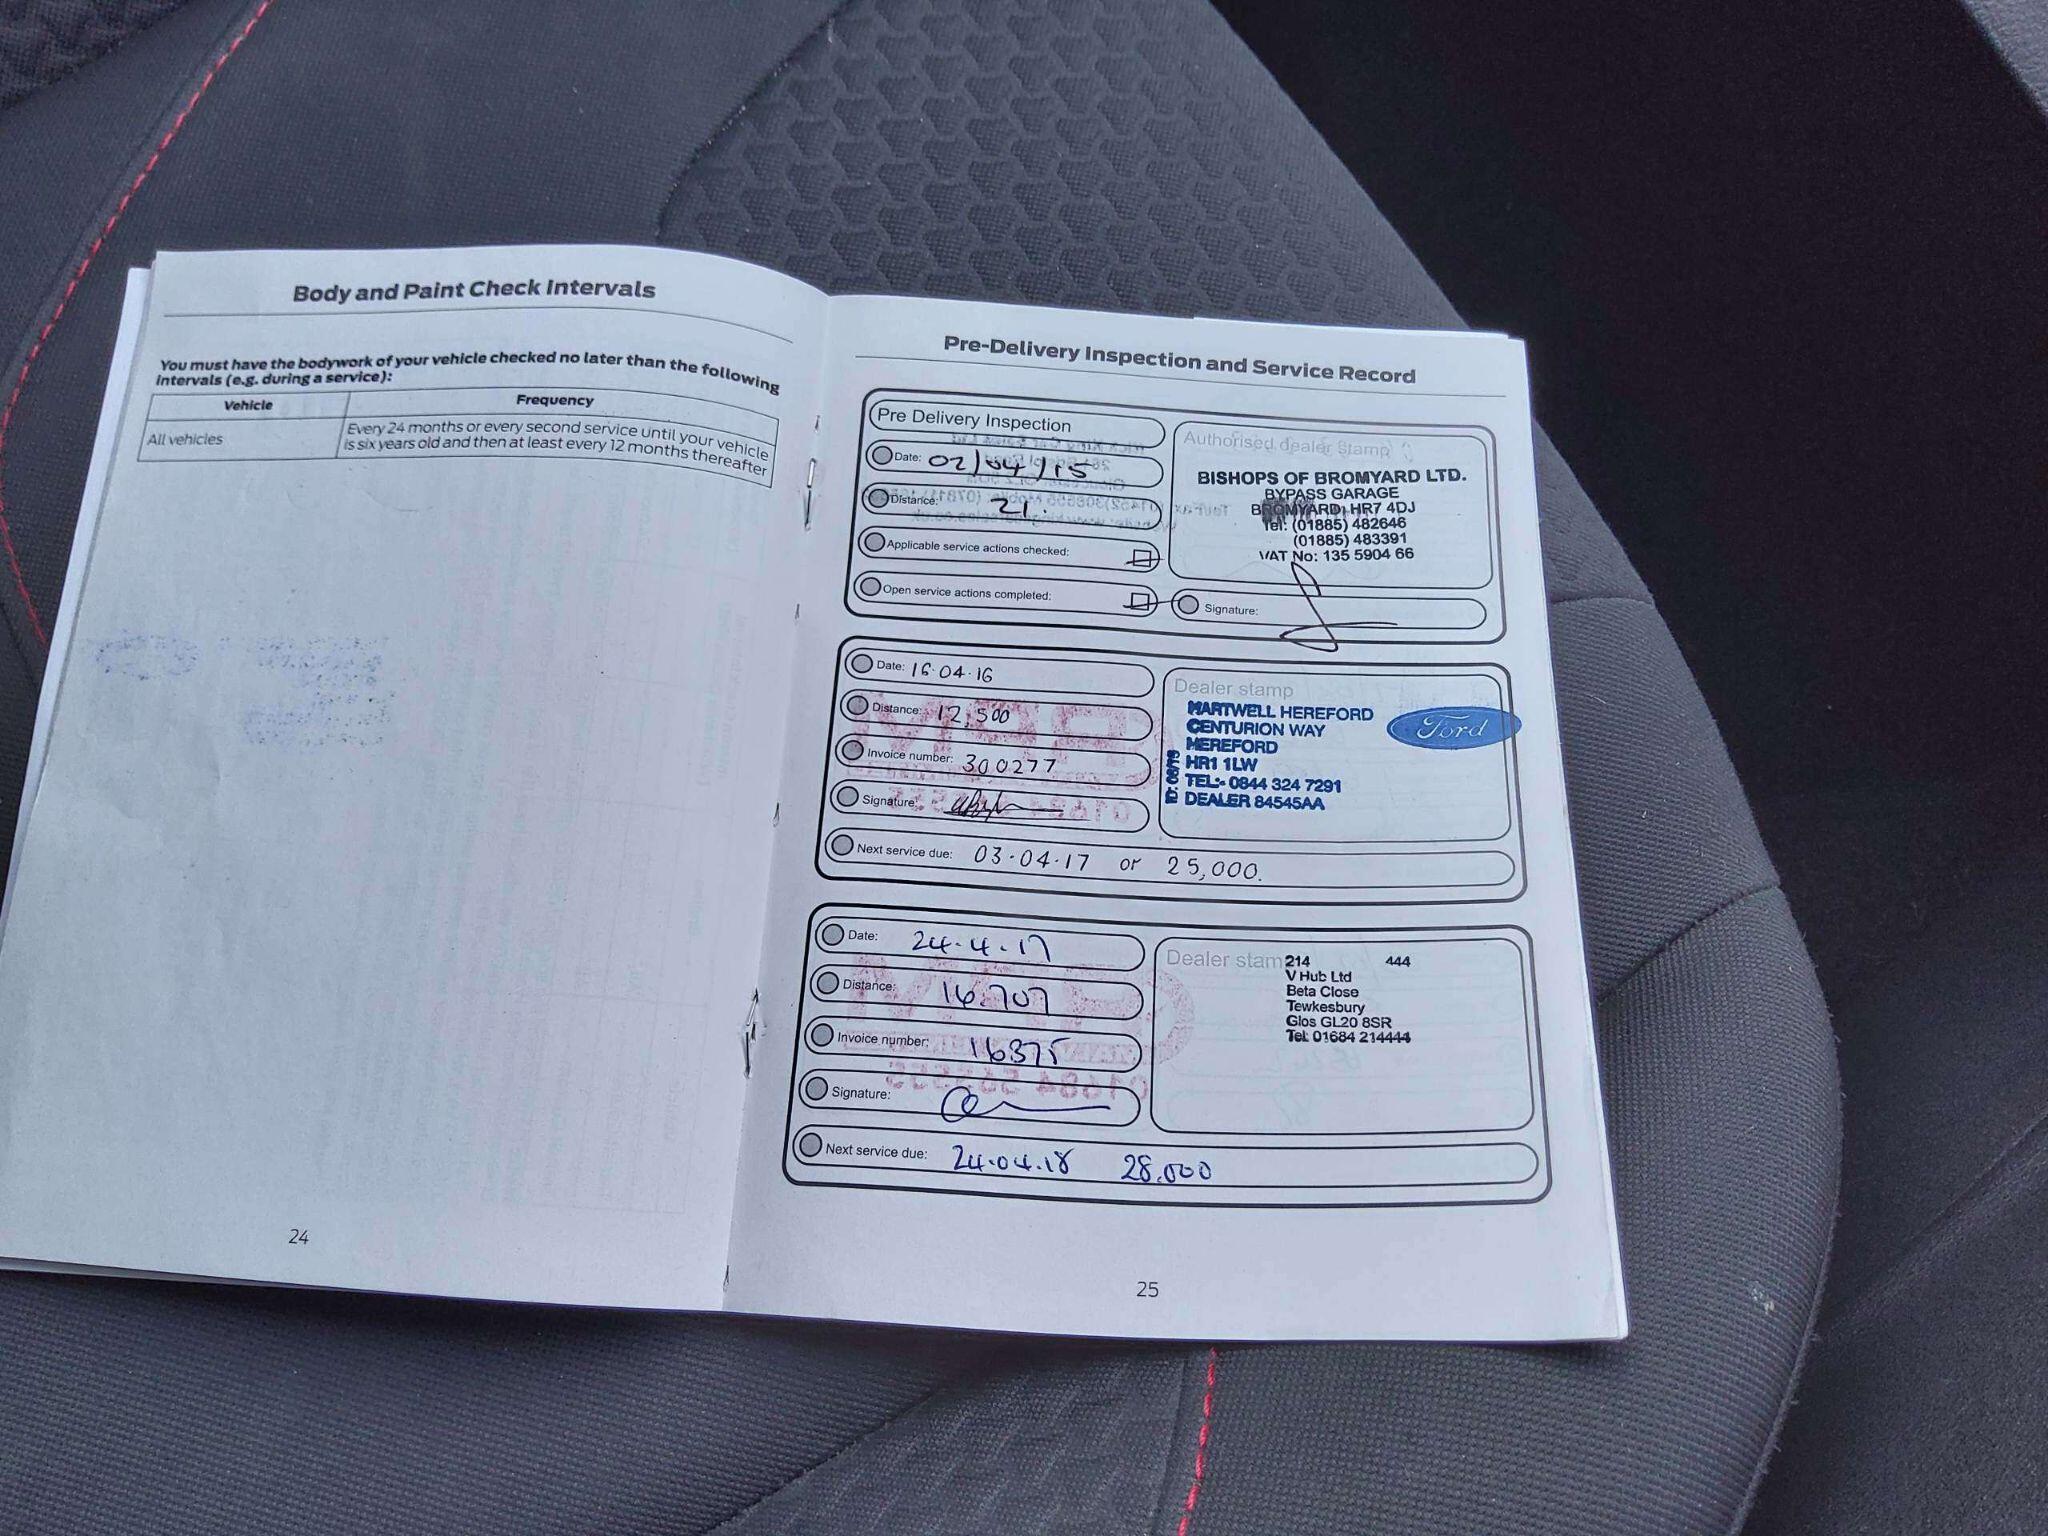 Body and Paint Check Intervals
You must have the bodywork of your vehicle checked no later than the following
intervals (e.g. during a service):
Vehicle Frequency
All vehicles Every 24 months or every second service until your vehicle
is six years old and then at least every 12 months thereafter
24
Pre-Delivery Inspection and Service Record
Pre Delivery Inspection
Date: 02/04/15
Distance: 21.
Applicable service actions checked:
Open service actions completed:
Authorised dealer Stamp
BISHOPS OF BROMYARD LTD.
BYPASS GARAGE
BROMYARD HR7 4DJ
Tel: (01885) 482646
(01885) 483391
VAT No: 135 5904 66
Signature:
Date: 16.04.16
Distance: 12,500
Invoice number: 300277
Signature:
Next service due: 03.04.17 or 25,000.
Dealer stamp
HARTWELL HEREFORD
CENTURION WAY
HEREFORD
HR1 1LW
TEL:- 0844 324 7291
DEALER 84545AA
Ford
Date: 24.4.17
Distance: 16.707
Invoice number: 16375
Signature:
Next service due: 24.04.18 28.000
Dealer stam
214 444
V Hub Ltd
Beta Close
Tewkesbury
Glos GL20 8SR
Tel: 01684 214444
25